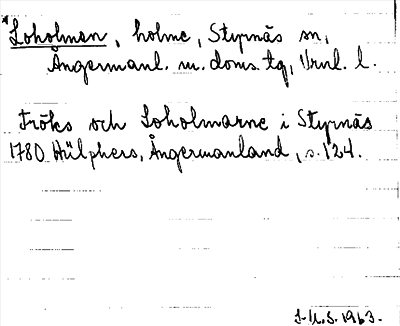 *Loholmen, holme, Styrnäs sn,
Ångermanl. m. doms. tg, Vrnl. l.
Fröks och Loholmarne i Styrnäs
1780 Hülphers, Ångermanland, s. 124.
J.N.S. 1963.